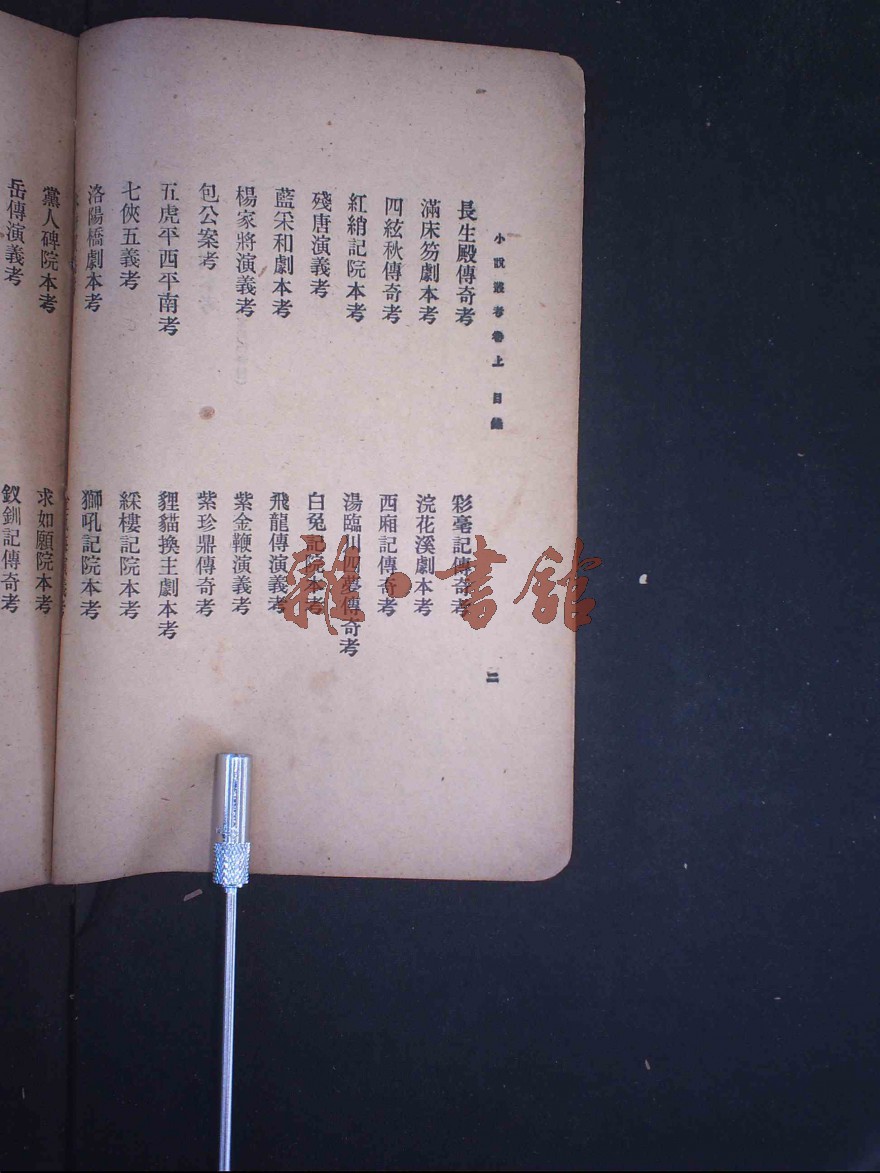 小說叢考卷上 目錄
二
長生殿傳奇考
彩毫記傳奇考
滿床笏劇本考
浣花溪劇本考
四絃秋傳奇考
西廂記傳奇考
紅綃記院本考
湯臨川四夢傳奇考
殘唐演義考
白兔記院本考
藍采和劇本考
飛龍傳演義考
楊家將演義考
紫金鞭演義考
包公案考
紫珍鼎傳奇考
五虎平西平南考
貍貓換主劇本考
七俠五義考
綵樓記院本考
洛陽橋劇本考
獅吼記院本考
黨人碑院本考
求如願院本考
岳傳演義考
釵釧記傳奇考
雜·書館